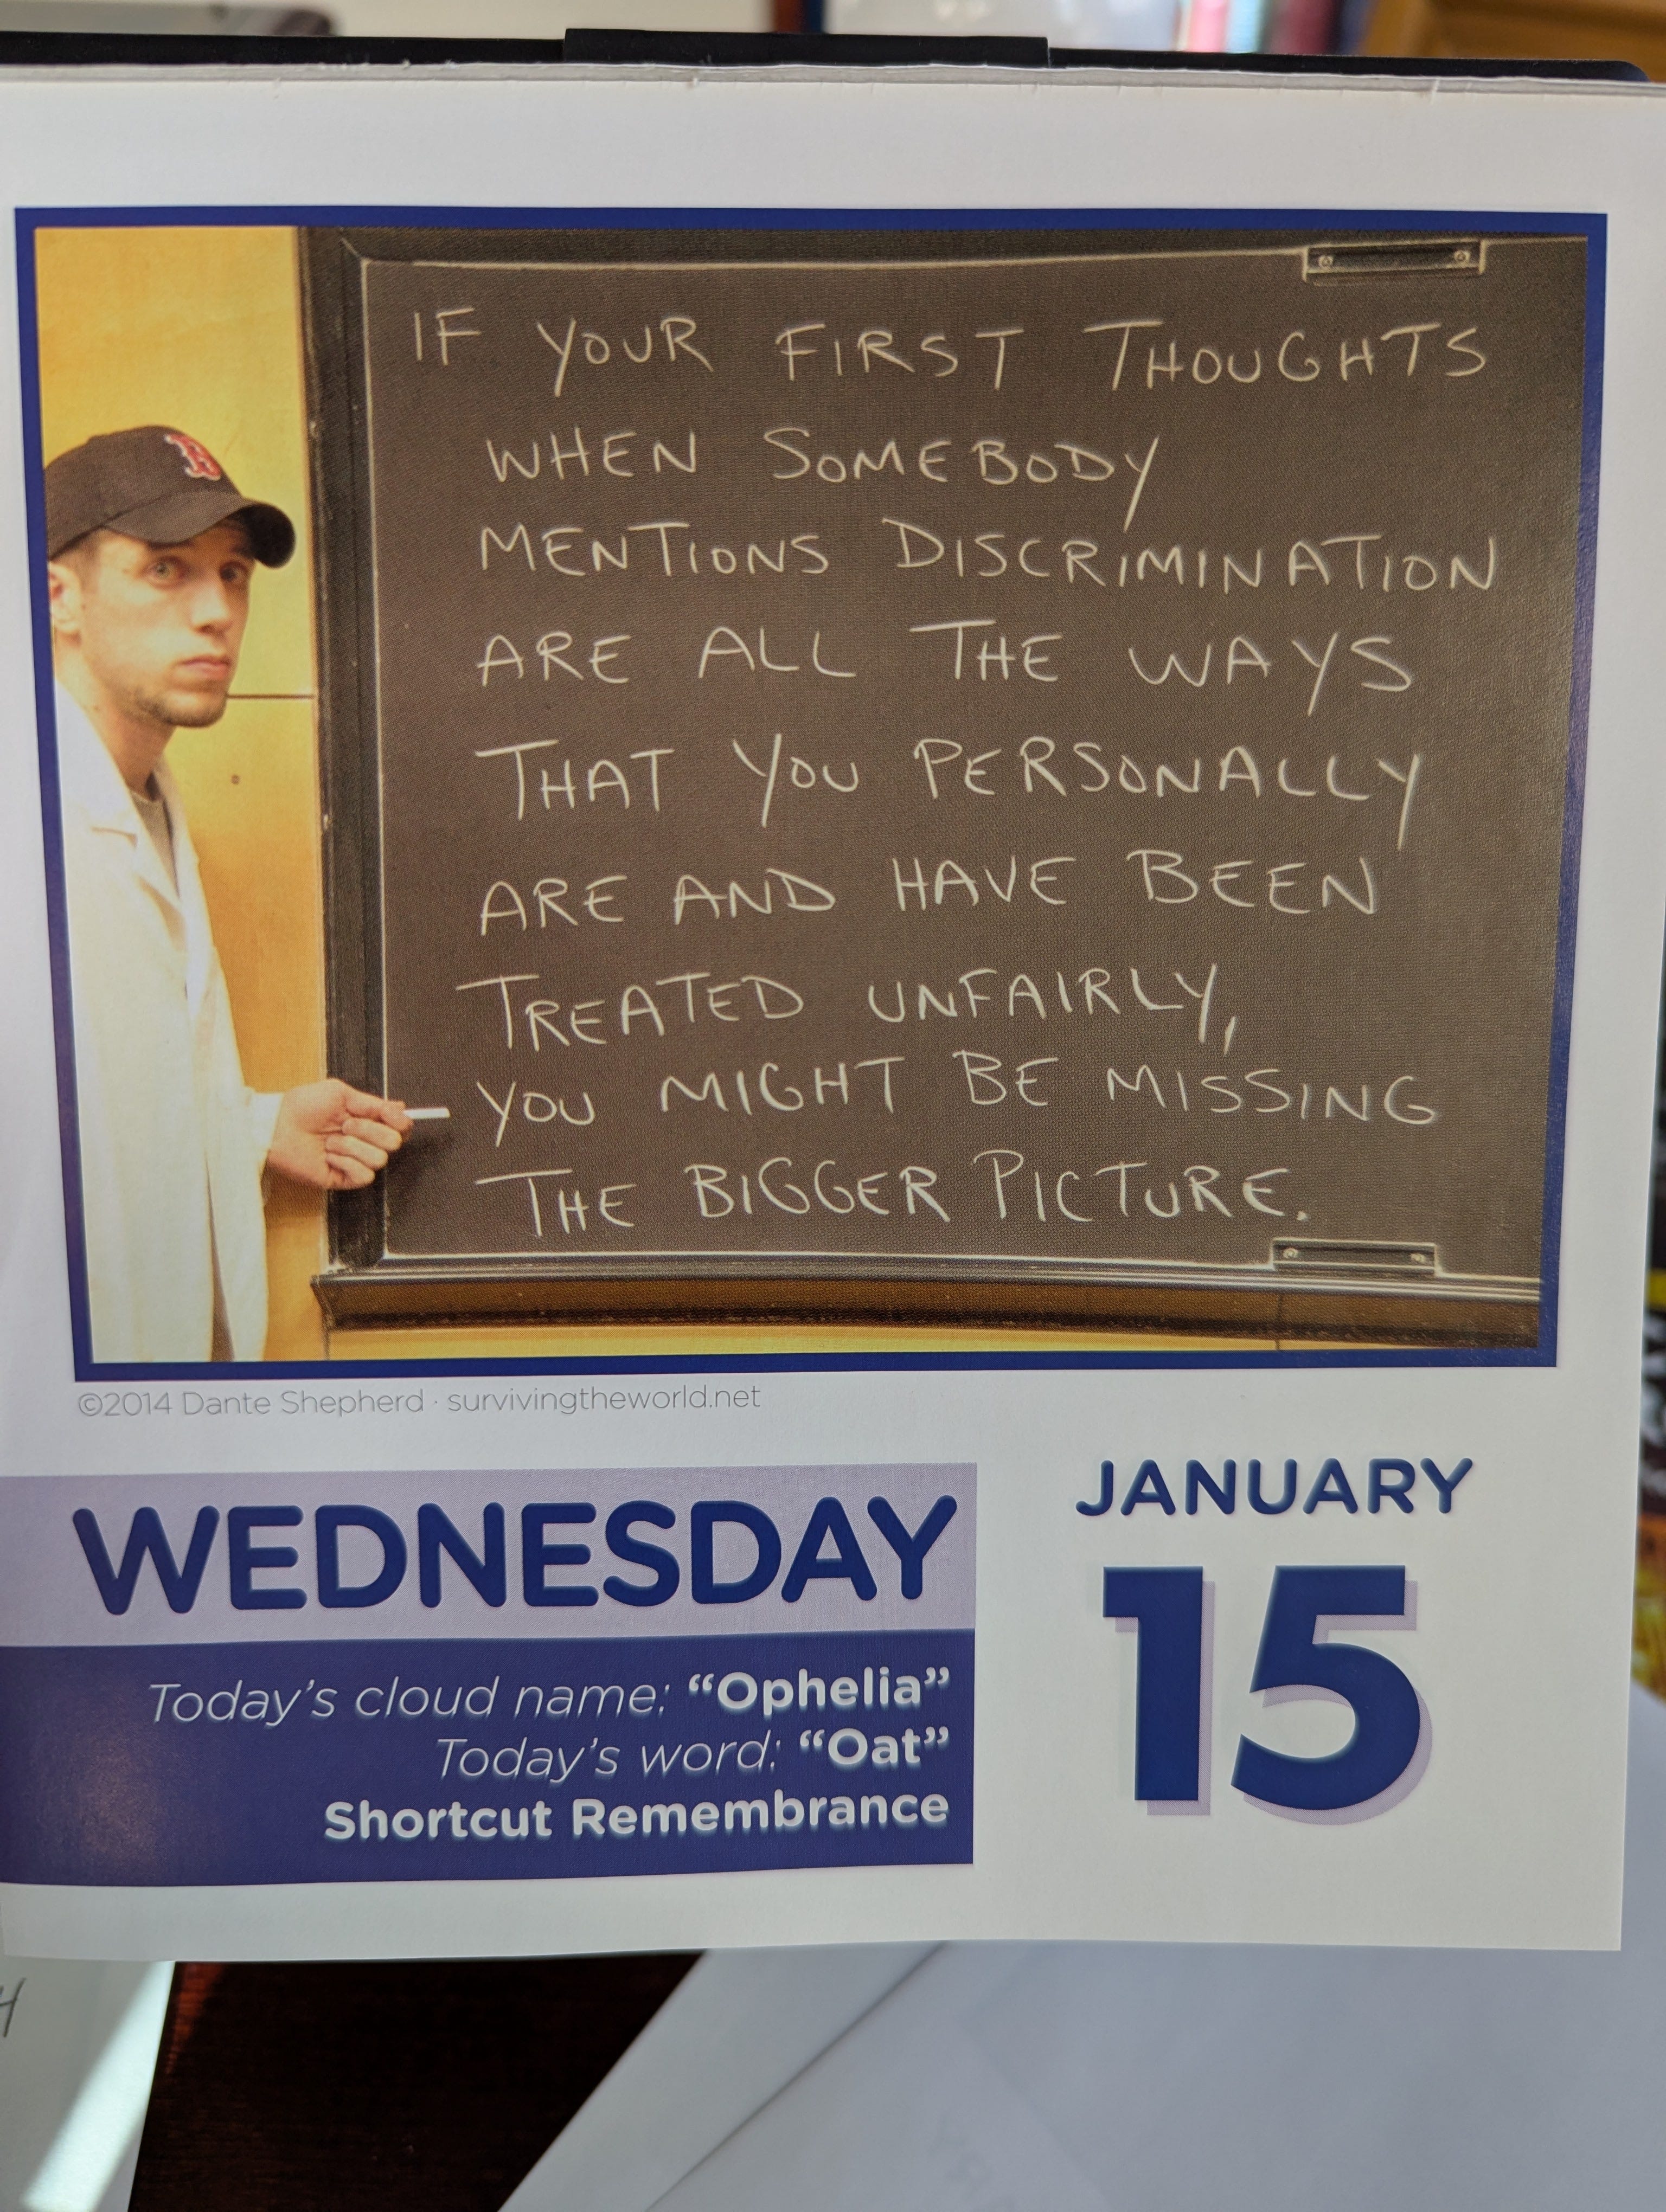 B
IF YOUR FIRST THOUGHTS
WHEN SOMEBODY
MENTIONS DISCRIMINATION
ARE ALL THE WAYS
THAT YOU PERSONALLY
ARE AND HAVE BEEN
TREATED UNFAIRLY,
YOU MIGHT BE MISSING
THE BIGGER PICTURE.
©2014 Dante Shepherd · survivingtheworld.net
WEDNESDAY
Today's cloud name: “Ophelia”
Today's word: “Oat”
Shortcut Remembrance
JANUARY
15